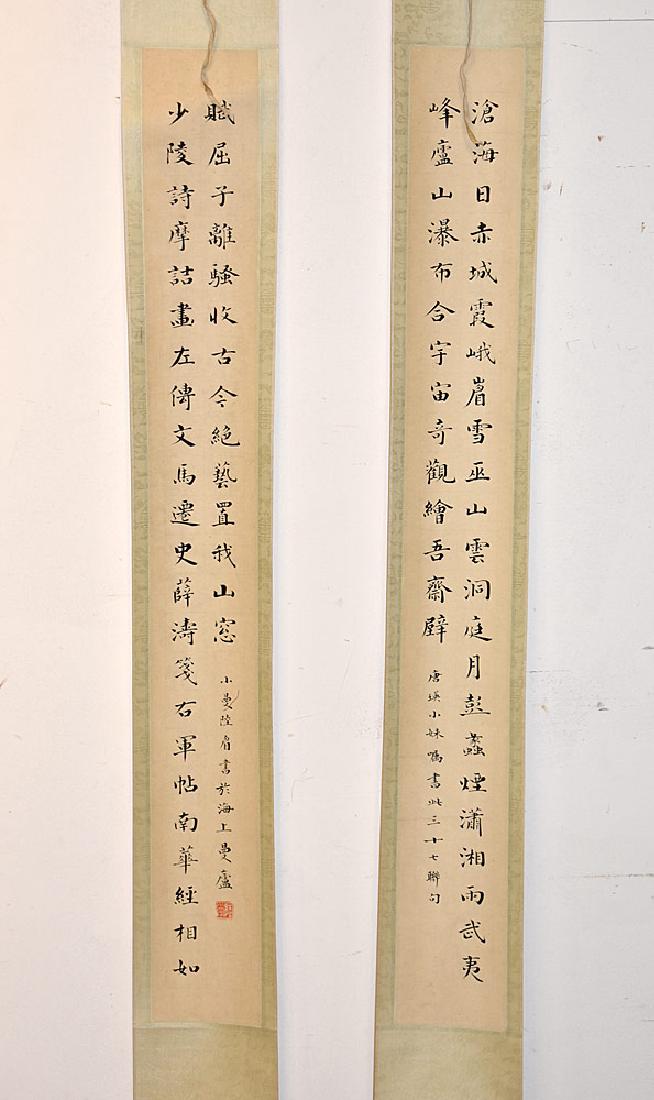 滄海日赤城霞峨嵋雪巫山雲洞庭月彭蠡煙瀟湘雨武夷
峰廬山瀑布合宇宙奇觀繪吾齋壁
唐瑛小妹嘱書此三十七聯句
少陵詩摩詰畫左傳文馬遷史薛濤箋右軍帖南華經相如
賦屈子離騷收古今絕藝置我山窓
小曼陸眉書於海上曼廬